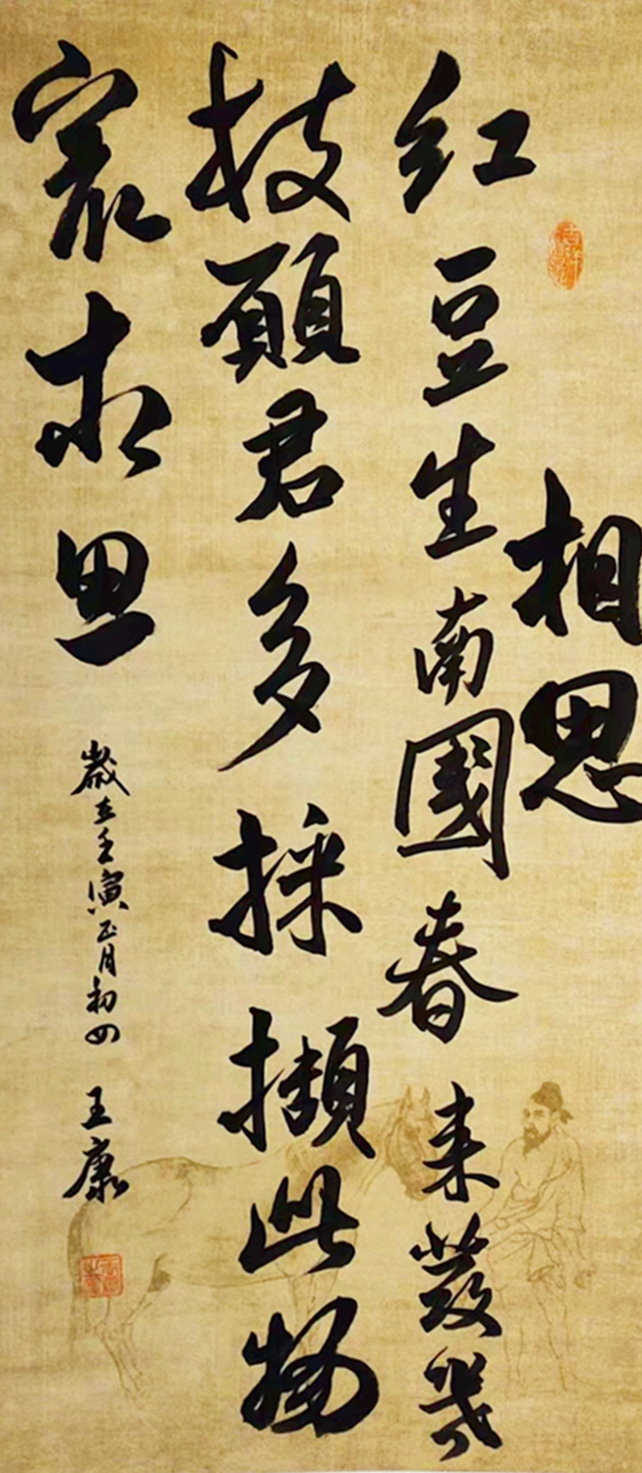 相思
红豆生南國春来发幾
枝願君多採擷此物
最相思 歲在壬寅正月初四 王康